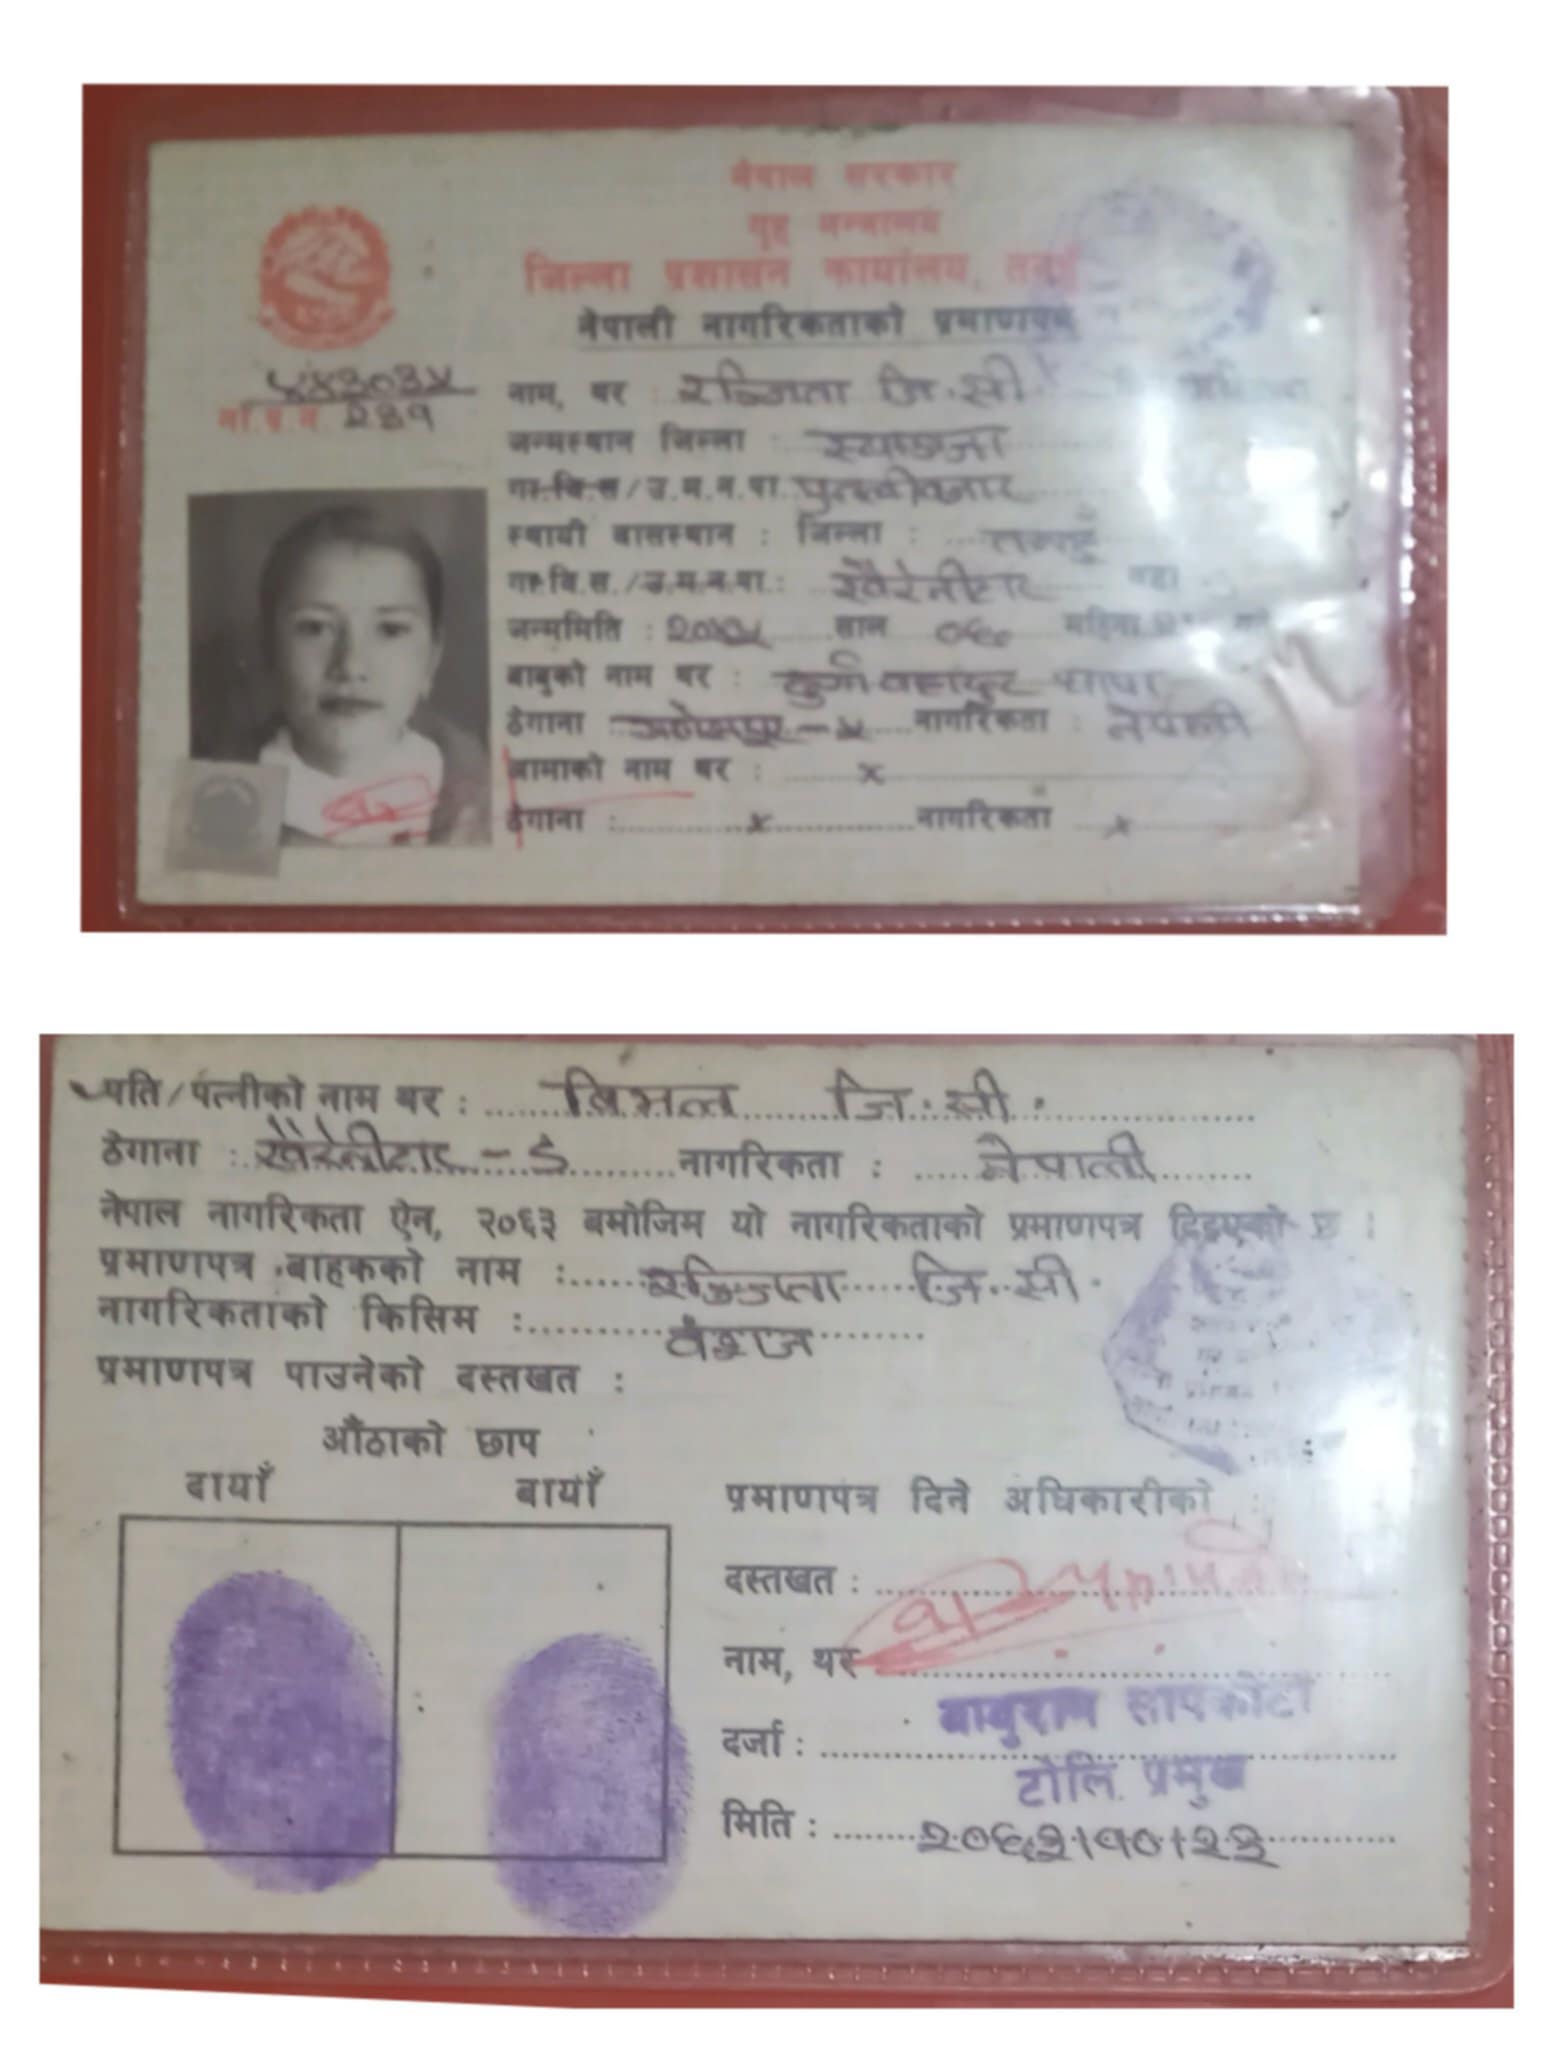 नेपाल सरकार
गृह मन्त्रालय
जिल्ला प्रशासन कार्यालय,
नेपाली नागरिकताको प्रमाणपत्र
ना.प्र.न. २३१
नाम, थर : रञ्जिता जि.सी.
जन्मस्थान जिल्ला : स्याङजा
गा.वि.स/उ.म.न.पा.
स्थायी बासस्थान : जिल्ला : तनहुँ
गा.वि.स./उ.म.न.पा.: खैरेनीटार वडा
जन्ममिति : साल महिना
बाबुको नाम थर : थापा
ठेगाना नागरिकता : नेपाली
आमाको नाम थर : x
ठेगाना : x नागरिकता x
पति/पत्नीको नाम थर : विमल जि.सी.
ठेगाना : खैरेनीटार - ६ नागरिकता : नेपाली
नेपाल नागरिकता ऐन, २०६३ बमोजिम यो नागरिकताको प्रमाणपत्र दिइएको छ :
प्रमाणपत्र बाहकको नाम : रञ्जिता जि.सी.
नागरिकताको किसिम : वंशज
प्रमाणपत्र पाउनेको दस्तखत :
औंठाको छाप
दायाँ बायाँ
प्रमाणपत्र दिने अधिकारीको
दस्तखत :
नाम, थर
बाबुराम सापकोटा
दर्जा :
टोलि प्रमुख
मिति : २०६३।१०।२३